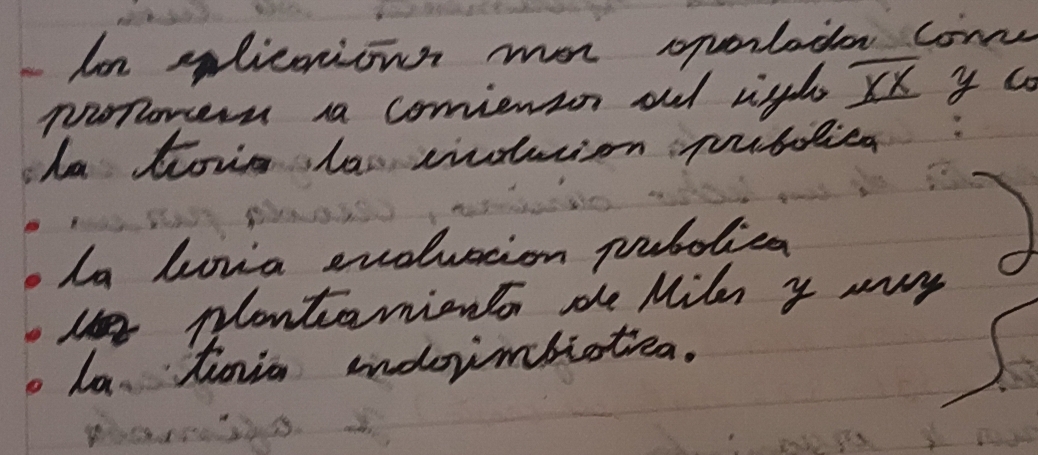 - los eplicacións mas aportadas come
proponen a comienzos del siglo XX y co
la teoria la evolucion prebolica :
• la teoria evoluacion prebolica
• planteamiento de Miler y urey
• la teoria endosimbiotica.